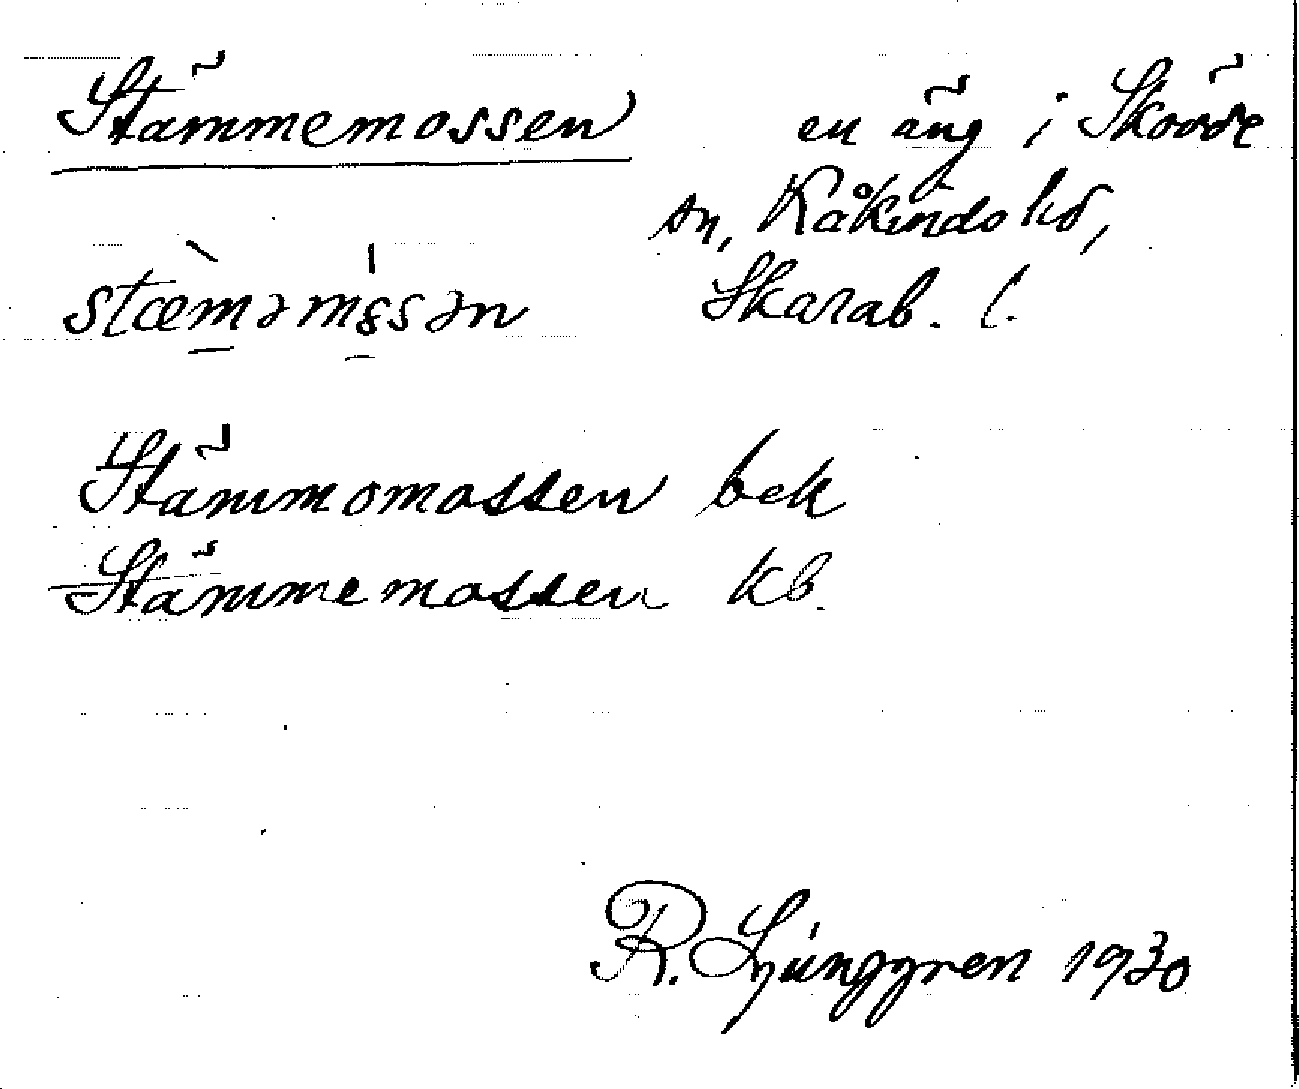 Stämmemossen en äng i Skövde
sn, Kåkinds hd,
stæməmɔssən Skarab. l.
Stämmomossen bek
Stämmemossen kb.
R. Ljunggren 1930